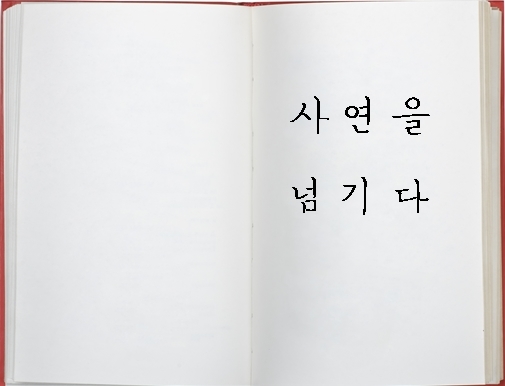 사연을
넘기다